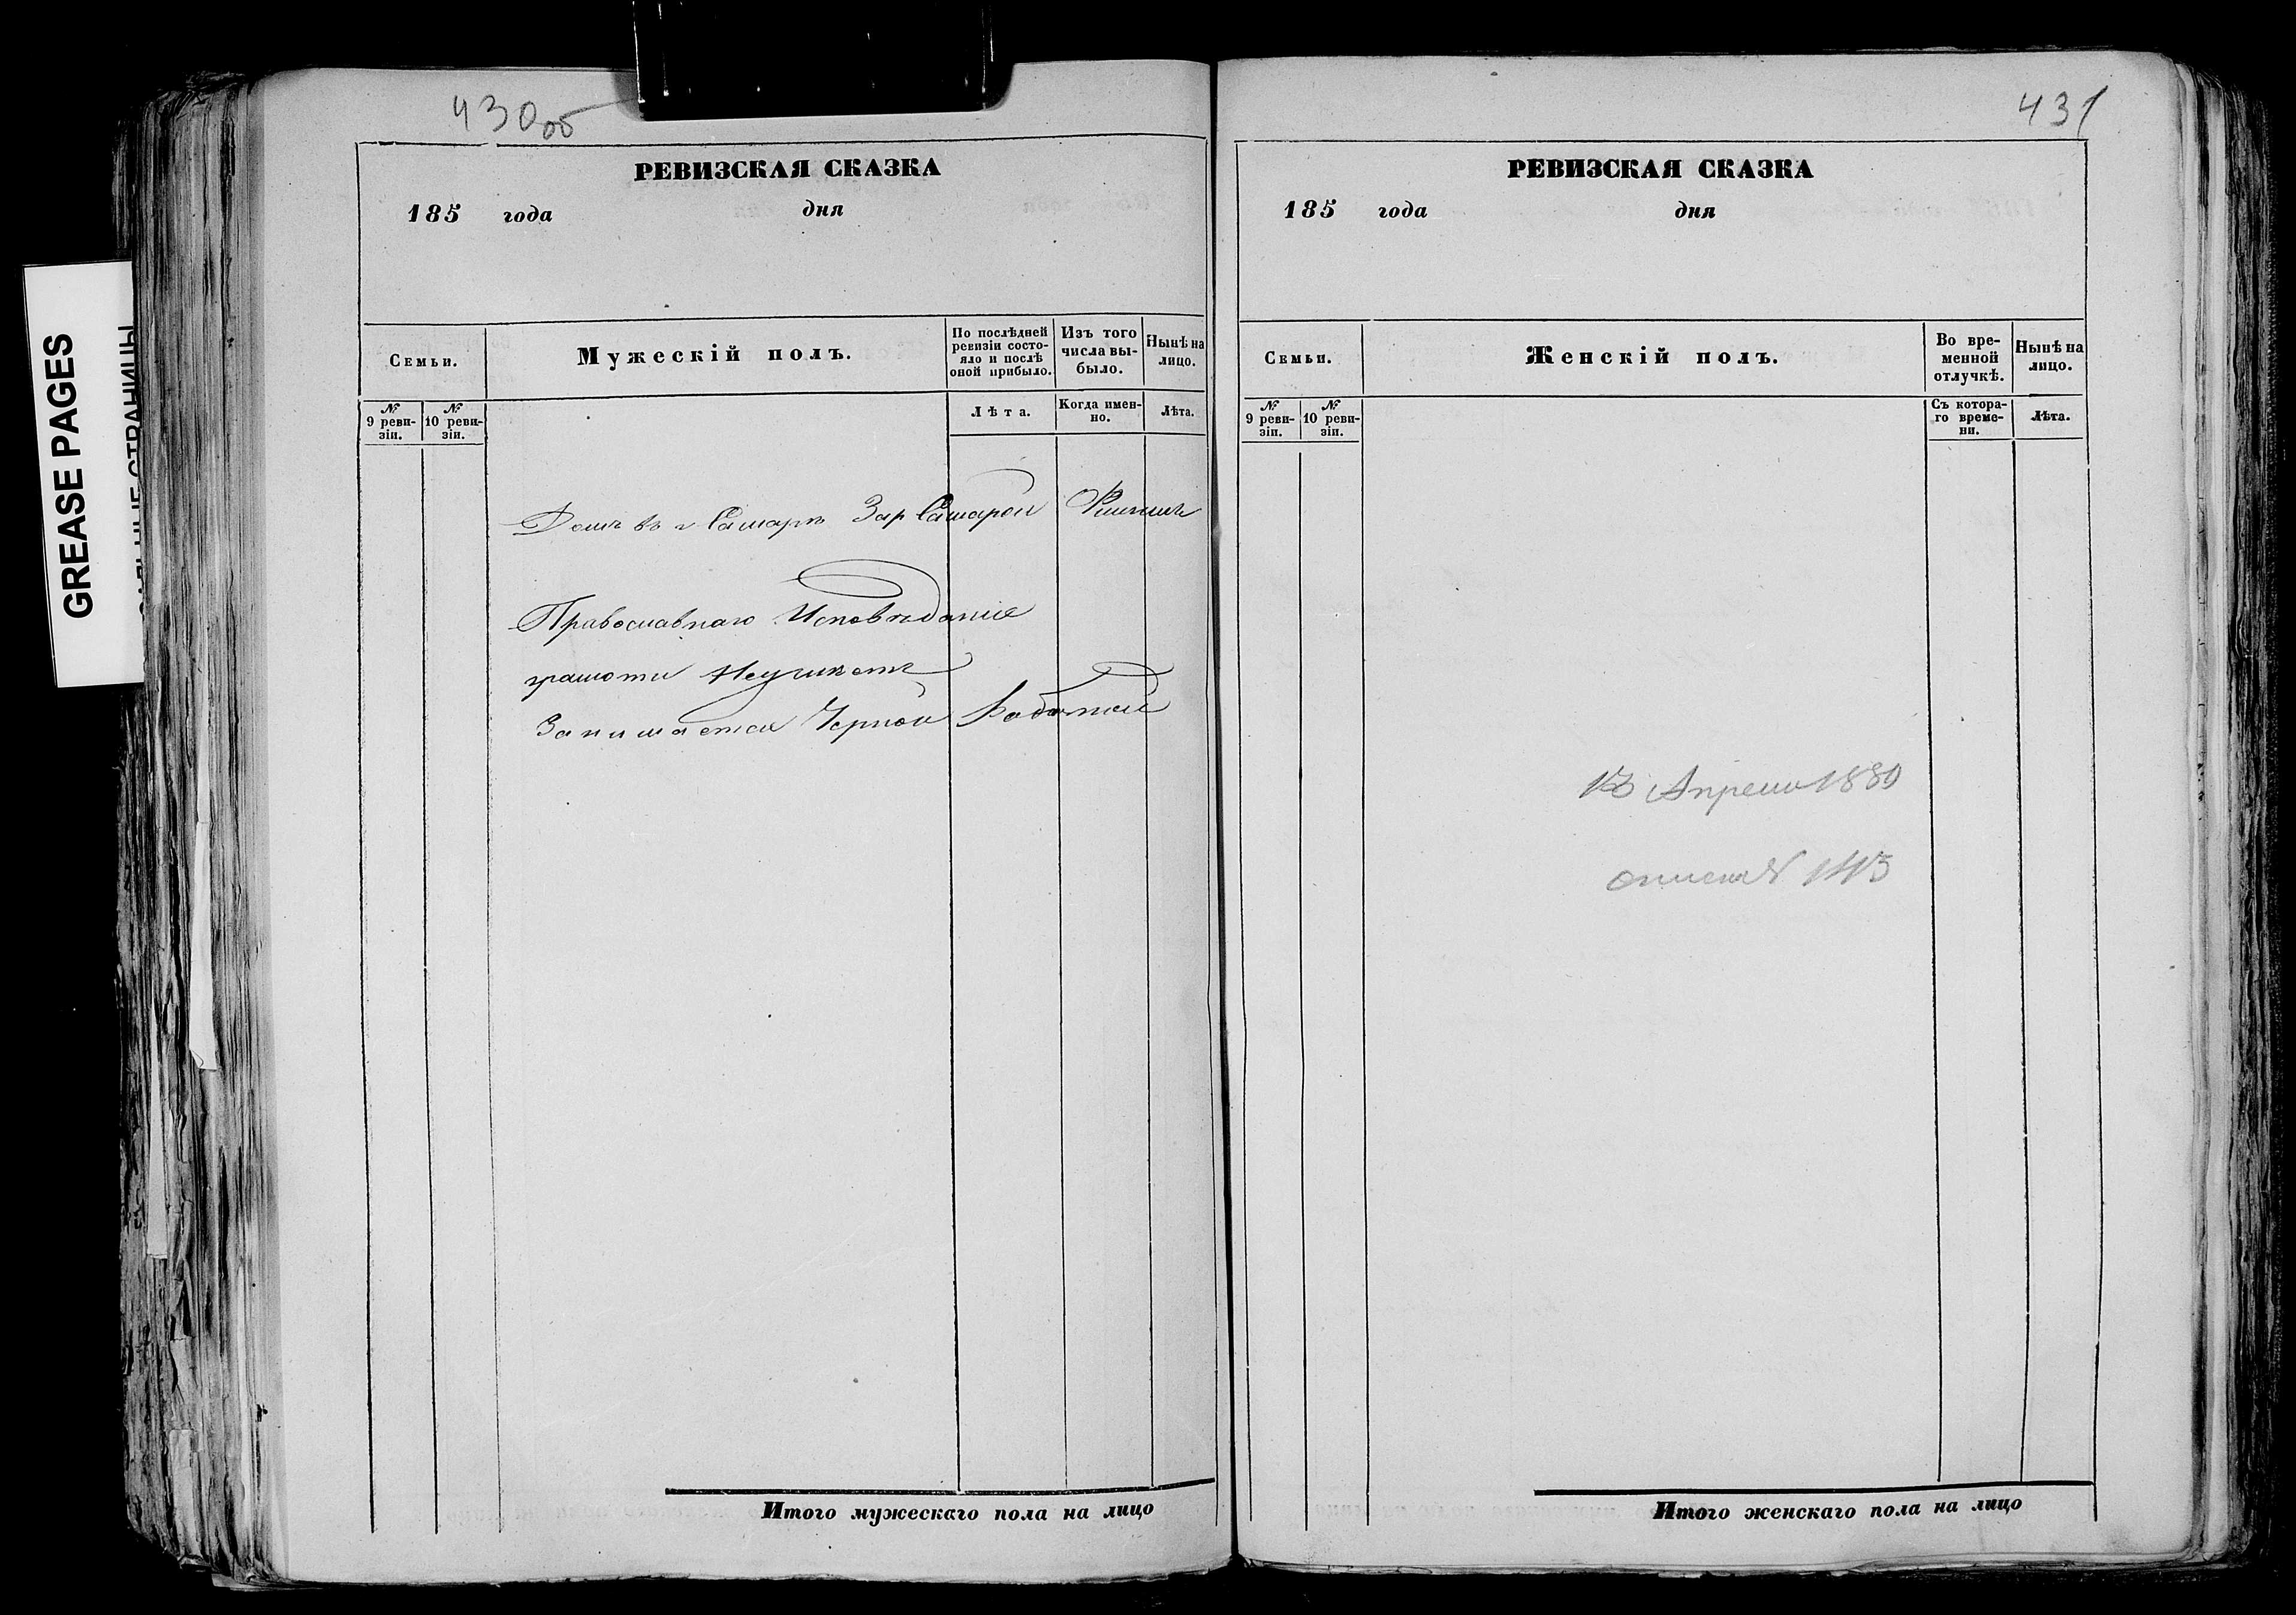 GREASE PAGES
430об
РЕВИЗСКАЯ СКАЗКА
185 года дня
Семьи.
Мужескій полъ.
По послѣдней ревизіи состояло и послѣ оной прибыло.
Изъ того числа выбыло.
Нынѣ на лицо.
№ 9 ревизіи.
№ 10 ревизіи.
Лѣта.
Когда именно.
Лѣта.
Домъ въ г Самарѣ За р Самарой
Православнаго Исповѣданія
грамоти Неумѣетъ
Занимается Черной Работой
Итого мужескаго пола на лицо
431
РЕВИЗСКАЯ СКАЗКА
185 года дня
Семьи.
Женскій полъ.
Во временной отлучкѣ.
Нынѣ на лицо.
№ 9 ревизіи.
№ 10 ревизіи.
Съ котораго времени.
Лѣта.
Апреля 1880
Итого женскаго пола на лицо